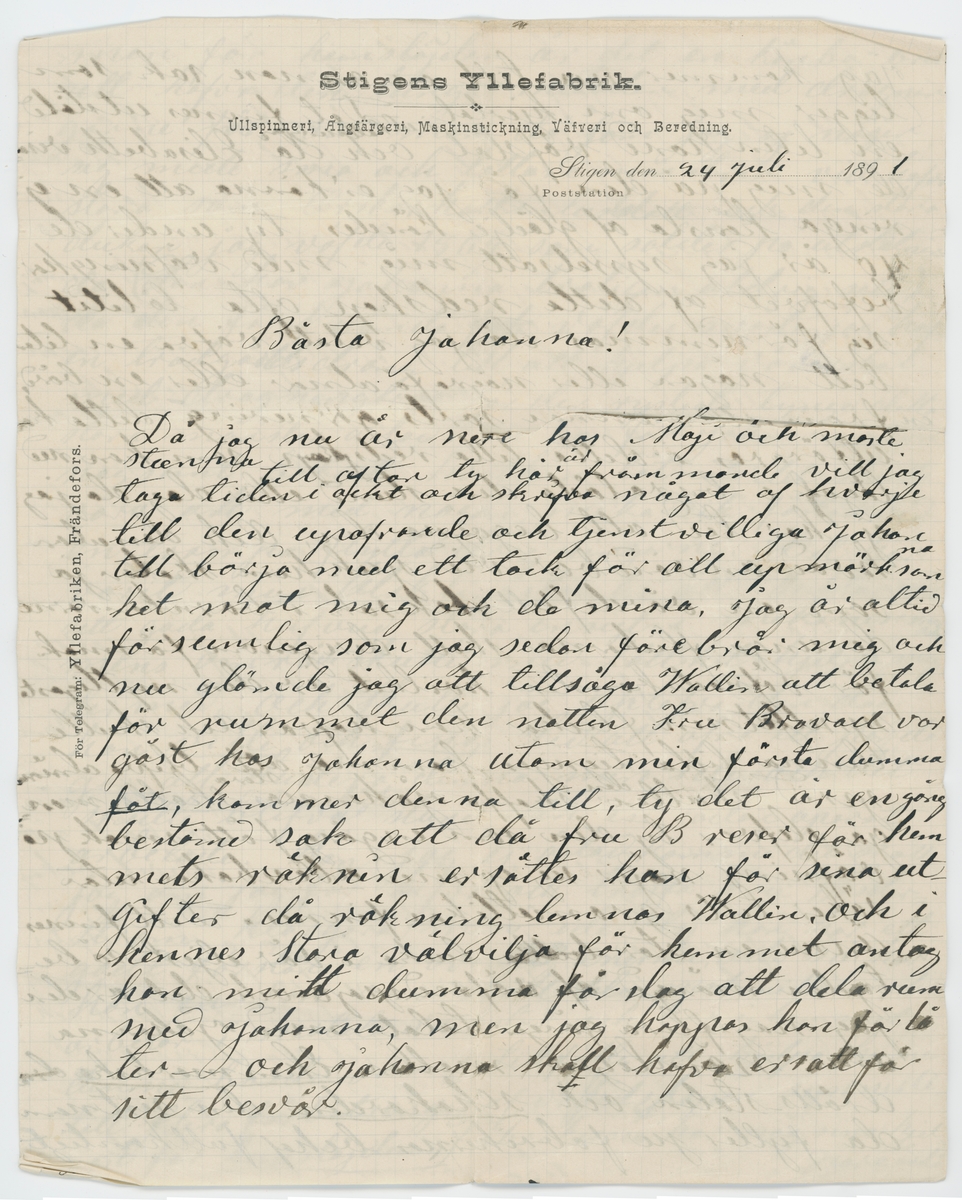 Stigens Yllefabrik.
Ullspinneri, Ångfärgeri, Maskinstickning, Väfveri och Beredning.
Stigen den 24 juli 1891
Poststation
För Telegram: Yllefabriken, Frändefors.
Bästa Johanna!
Då jag nu är nere hos Maji och måste
stanna till aftor ty här är främmande vill jag
taga tiden i ackt och skrifva något af hvarje
till den upofrande och tjenstvilliga Johanna
till börja med ett tack för all upmärksam
het mot mig och de mina, Jag är altid
försumlig som jag sedan förebrår mig och
nu glömde jag att tillsäga Wallin att betala
för rummet den natten Fru Bravad var
gäst hos Johanna utom min första dumma
fåt, kommer denna till, ty det är en gång
bestämd sak att då fru B reser för hem
mets räknin ersättes hon för sina ut
Gifter då räkning lemnas Wallin. Och i
hennes Stora välvilja för hemmet antog
hon mitt dumma förslag att dela rum
med Johanna, men jag hoppas hon förlå
ter— och Johanna skall hafva ersatt för
sitt besvär.